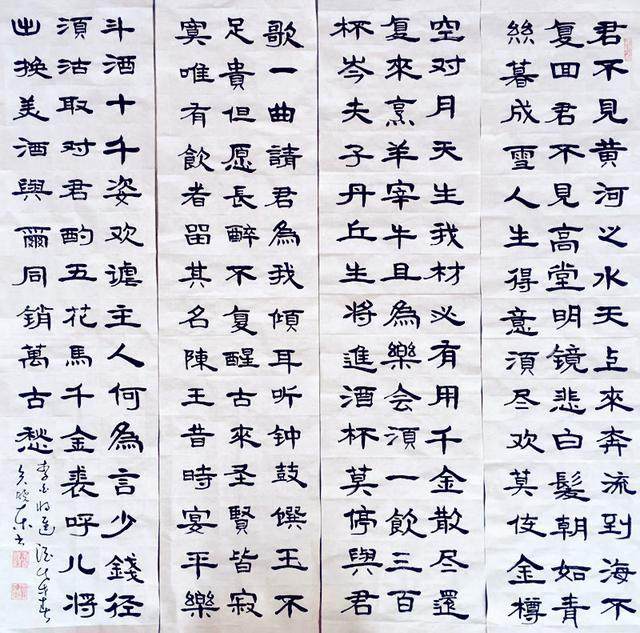 君不見黄河之水天上來奔流到海不
复回君不見高堂明鏡悲白髮朝如青
絲暮成雪人生得意須尽欢莫使金樽
空对月天生我材必有用千金散尽還
复來烹羊宰牛且為樂会須一飲三百
杯岑夫子丹丘生將進酒杯莫停與君
歌一曲請君為我傾耳听钟鼓馔玉不
足貴但愿長醉不复醒古來圣賢皆寂
寞唯有飲者留其名陳王昔時宴平樂
斗酒十千姿欢谑主人何為言少錢径
須沽取对君酌五花馬千金裘呼儿將
出换美酒與爾同銷萬古愁
李白将進酒